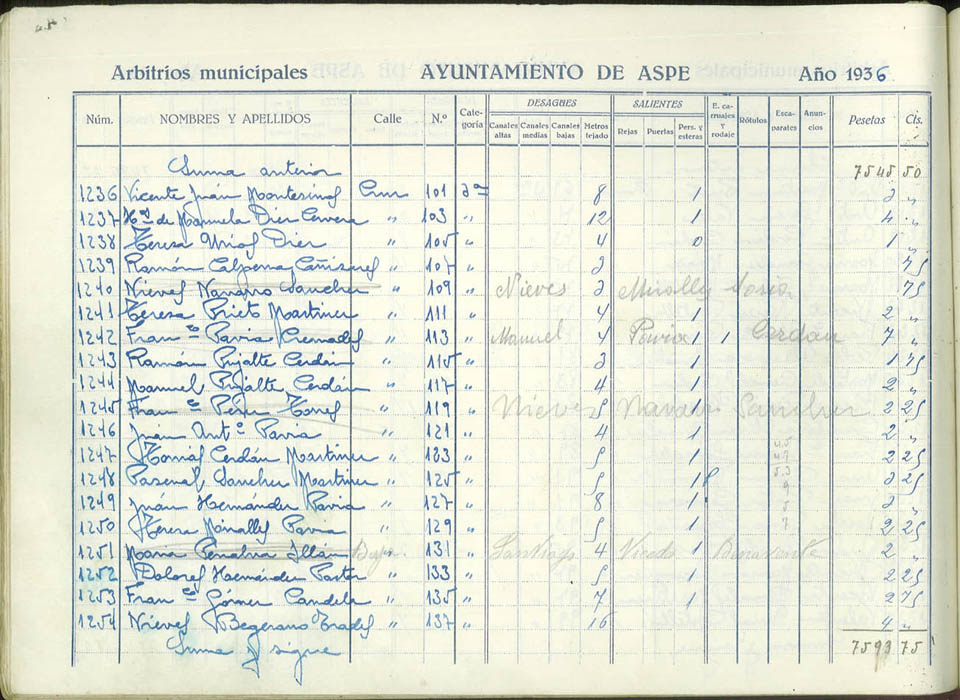 Arbitrios municipales AYUNTAMIENTO DE ASPE Año 1936
DESAGUES SALIENTES
Núm. NOMBRES Y APELLIDOS Calle N.º Cate-goría Canales altas Canales medias Canales bajas Metros tejado Rejas Puertas Pers. y esteras E. ca-rruajes y rodaje Rótulos Esca-parates Anun-cios Pesetas Cts.
Suma anterior 7545 50
1236 Vicente Juán Montesinos Cruz 101 2ª 8 1 3 "
1237 Hºs de Manuela Dier Cervera " 103 " 12 1 4 "
1238 Teresa Uriol Dier " 105 " 4 0 1 "
1239 Ramón Calpena Cañisares " 107 " 3 75
1240 Nieves Navarro Sanchez " 109 " Nieves 3 Miralles 75
1241 Teresa Prieto Martinez " 111 " 4 1 2 "
1242 Franco Pavia Cremades " 113 " Manuel 4 Pavia 1 1 Cerdán 7 "
1243 Ramón Pujalte Cerdán " 115 " 3 1 1 75
1244 Manuel Pujalte Cerdán " 117 " 4 1 2 "
1245 Franco Pérez Torres " 119 " Nieves 5 Navarro 1 Sanchez 2 25
1246 Juán Antº Pavia " 121 " 4 1 2 "
1247 Tomás Cerdán Martinez " 123 " 5 1 2 25
1248 Pascual Sanchez Martinez " 125 " 5 1 2 25
1249 Juán Hernández Pavia " 127 " 8 1 3 "
1250 Teresa Miralles Pavia " 129 " 5 1 2 25
1251 Maria Penalva Illán " 131 " Santiago 4 Vicedo 1 Benavente 2 "
1252 Dolores Hernández Pastor " 133 " 5 1 2 25
1253 Franco Gómez Candela " 135 " 7 1 2 75
1254 Nieves Begerano Prades " 137 " 16 4 "
Suma y sigue 7593 75